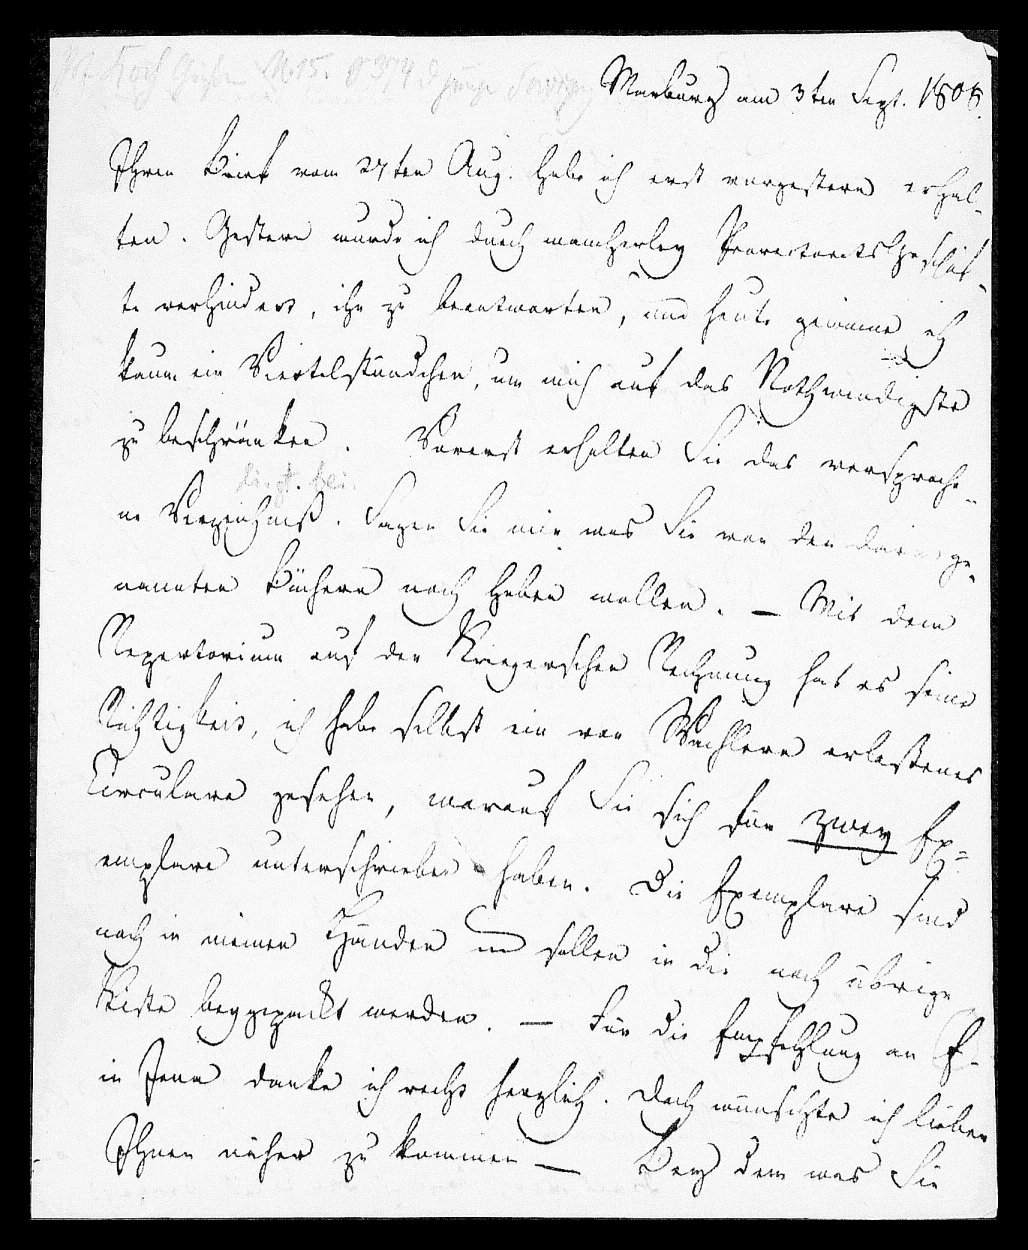 Marburg am 3ten Sept. 1808.
Ihren Brief vom 27ten Aug. habe ich erst vorgestern erhal-
ten. Gestern wurde ich durch mancherley Prorectoratsgeschäf-
te verhindert, ihn zu beantworten, und heute gewinne ich
kaum ein Viertelstündchen, um mich auf das Nothwendigste
zu beschränken. Vorerst erhalten Sie das versproche-
liegt bei.
ne Verzeichniß. Sagen Sie mir was Sie von den darin ge-
nannten Büchern noch haben wollen. — Mit dem
Repertorium auf der Kriegerschen Rechnung hat es seine
Richtigkeit, ich habe selbst ein von Wachlern erlaßenes
Circulare gesehen, worauf Sie sich für zwey Ex-
emplare unterschrieben haben. Die Exemplare sind
noch in meinen Händen und sollen in die noch übrige
Kiste beygepackt werden. — Für die Empfehlung an E.
in Jena danke ich recht herzlich. Doch wünschte ich lieber
Ihnen näher zu kommen — Bey dem was Sie